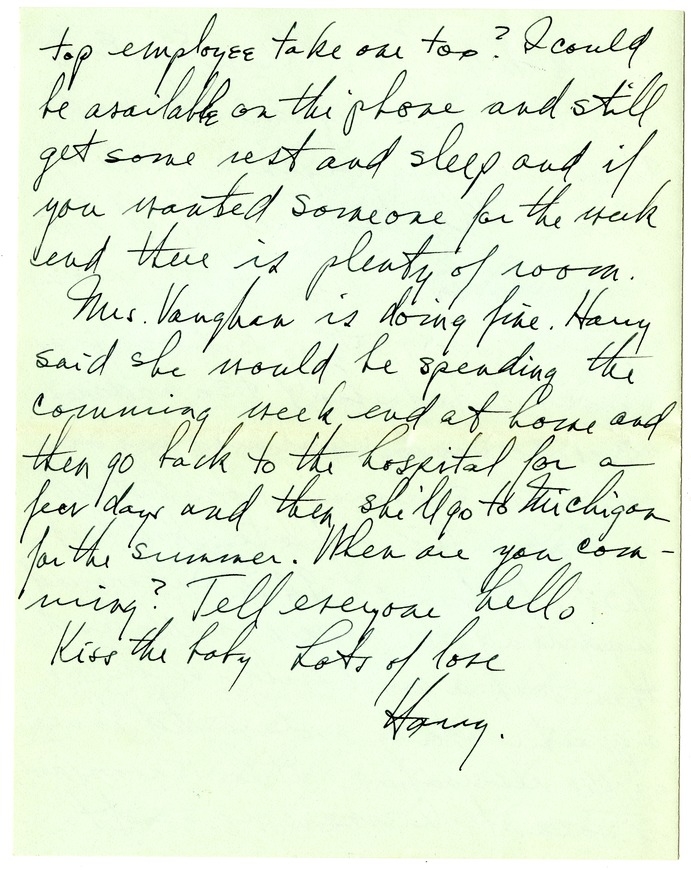 top employee take one too? I could
be available on the phone and still
get some rest and sleep and if
you wanted someone for the week
end there is plenty of room.
Mrs. Vaughan is doing fine. Harry
said she would be spending the
comming week end at home and
then go back to the hospital for a
few days and then she'll go to Michigan
for the summer. When are you com-
ming? Tell everyone hello.
Kiss the baby Lots of love
Harry.